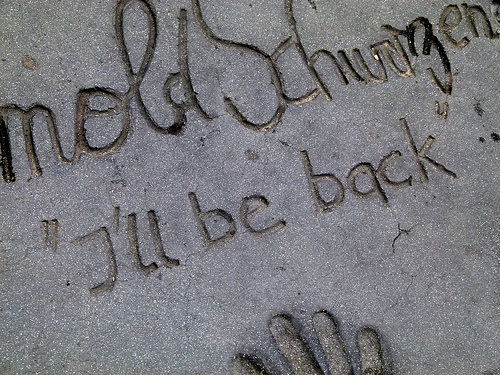 rnold Schwarzene
"I'll be back"